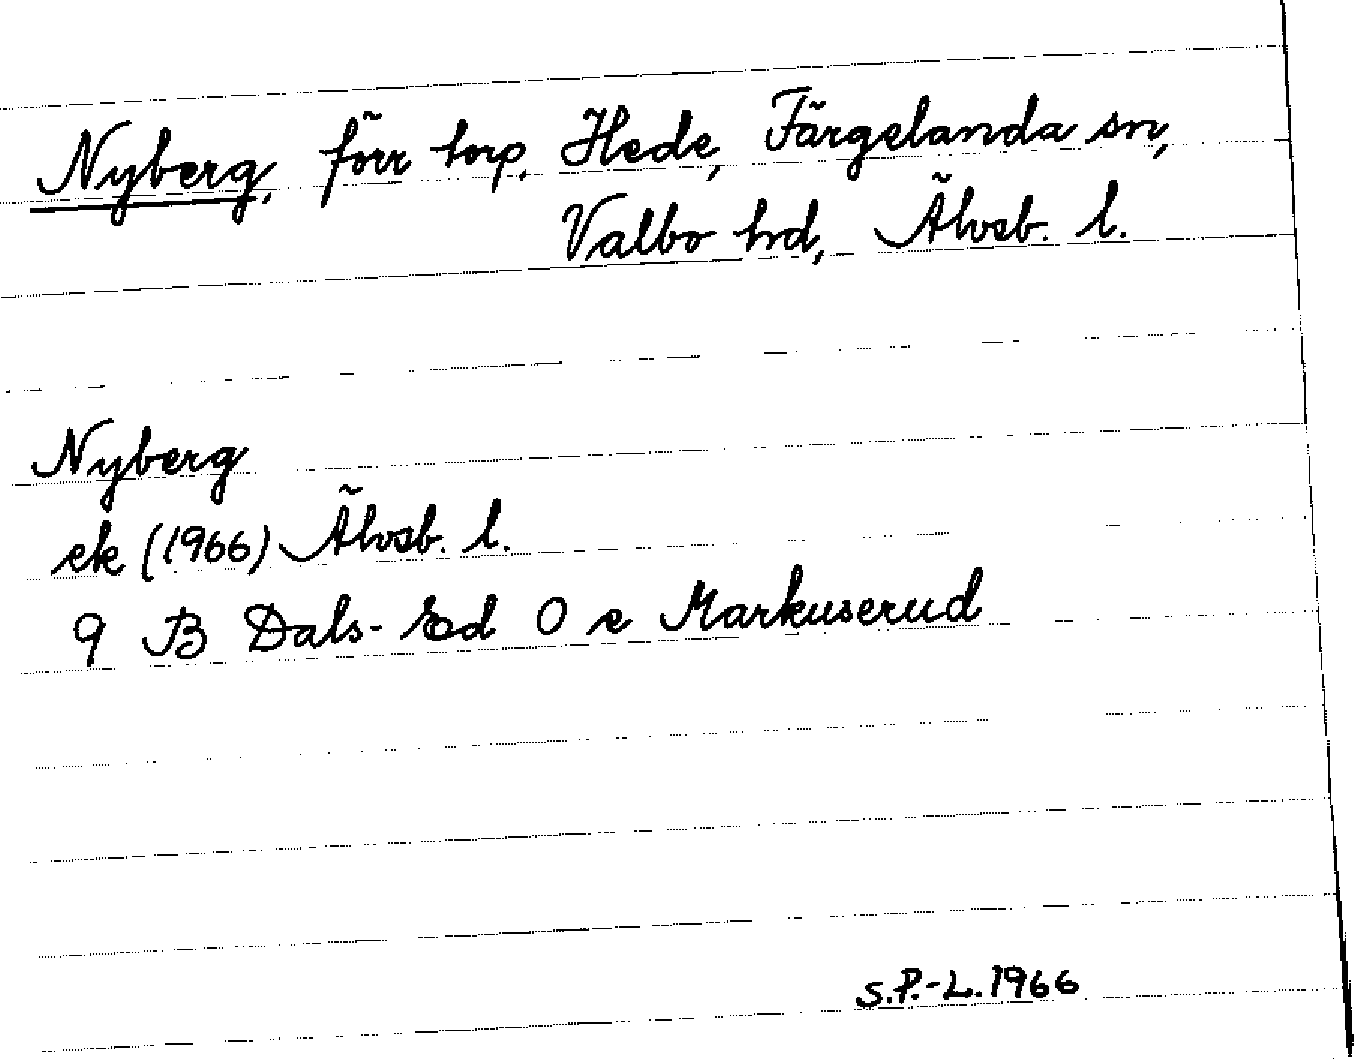 Nyberg, förr torp, Hede, Färgelanda sn,
Valbo hd, Älvsb. l.
Nyberg
ek (1966) Älvsb. l.
9 B Dals-Ed O e Markuserud
S.P.-L. 1966